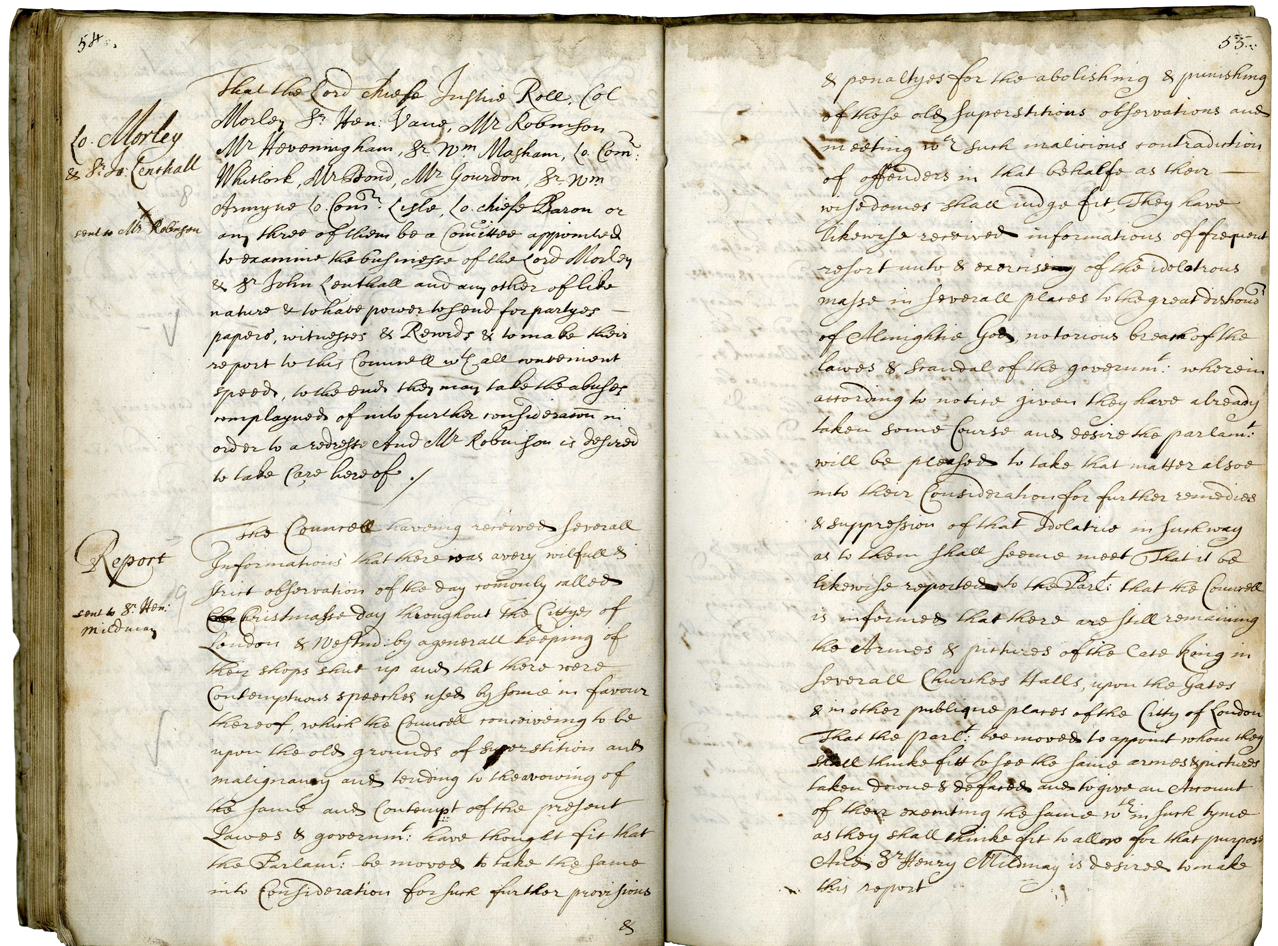 54.
That the Lord Chiefe Justice Roll, Col
Morley Sr Hen: Vane, Mr Robinson
Lo. Morley
Mr Heveningham, Sr Wm Masham, Lo. Comr:
& Sr Jo: Lenthall
Whitlock, Mr Bond, Mr Gourdon, Sr Wm
Armyne Lo. Comr: Lisle, Lo. chiefe Baron or
sent to Mr Robinson
any three of them be a Comittee appointed
to examine the businesse of the Lord Morley
& Sr John Lenthall and any other of like
nature & to have power to send for partyes —
papers, witnesses & Records & to make their
report to this Councell wth all convenient
speed, to the end they may take the abuses
complayned of into further consideracon in
order to a redresse And Mr Robinson is desired
to take Care hereof /
The Councell haveing received severall
Report
Informations that there was a very wilfull &
strict observation of the day comonly called
sent to Sr Hen:
Mildmay
Christmasse day throughout the Cittyes of
London & Westmr: by a generall keeping of
their shops shut up and that there were
Contemptuous speeches used by some in favour
thereof, which the Councell conceiveing to be
upon the old grounds of superstition and
malignancy and tending to the avowing of
the same and Contempt of the present
Lawes & governmt: have thought fit that
the Parlamt: be moved to take the same
into Consideration for such further provisions
&
55.
& penaltyes for the abolishing & punishing
of those old superstitious observations and
meeting wth such malicious contradiction
of offenders in that behalfe as their —
wisedomes shall judge fit, They have
likewise received informations of frequent
resort unto & exercising of the idolatrous
masse in severall places to the great dishonor
of Almightie God, notorious breach of the
lawes & scandal of the governmt: wherein
according to notice given they have already
taken some Course and desire the parlamt:
will be pleased to take that matter alsoe
into their Consideration for further remedies
& suppression of that Idolatrie in such way
as to them shall seeme meet That it be
likewise reported to the Parlt: that the Councell
is informed that there are still remaining
the Armes & pictures of the late King in
severall Churches Halls, upon the Gates
& in other publique places of the Citty of London
That the parlt: bee moved to appoint whom they
shall thinke fitt to see the same armes & pictures
taken downe & defaced and to give an Account
of their executing the same wth in such tyme
as they shall thinke fit to allow for that purpose
And Sr Henry Mildmay is desired to make
this report